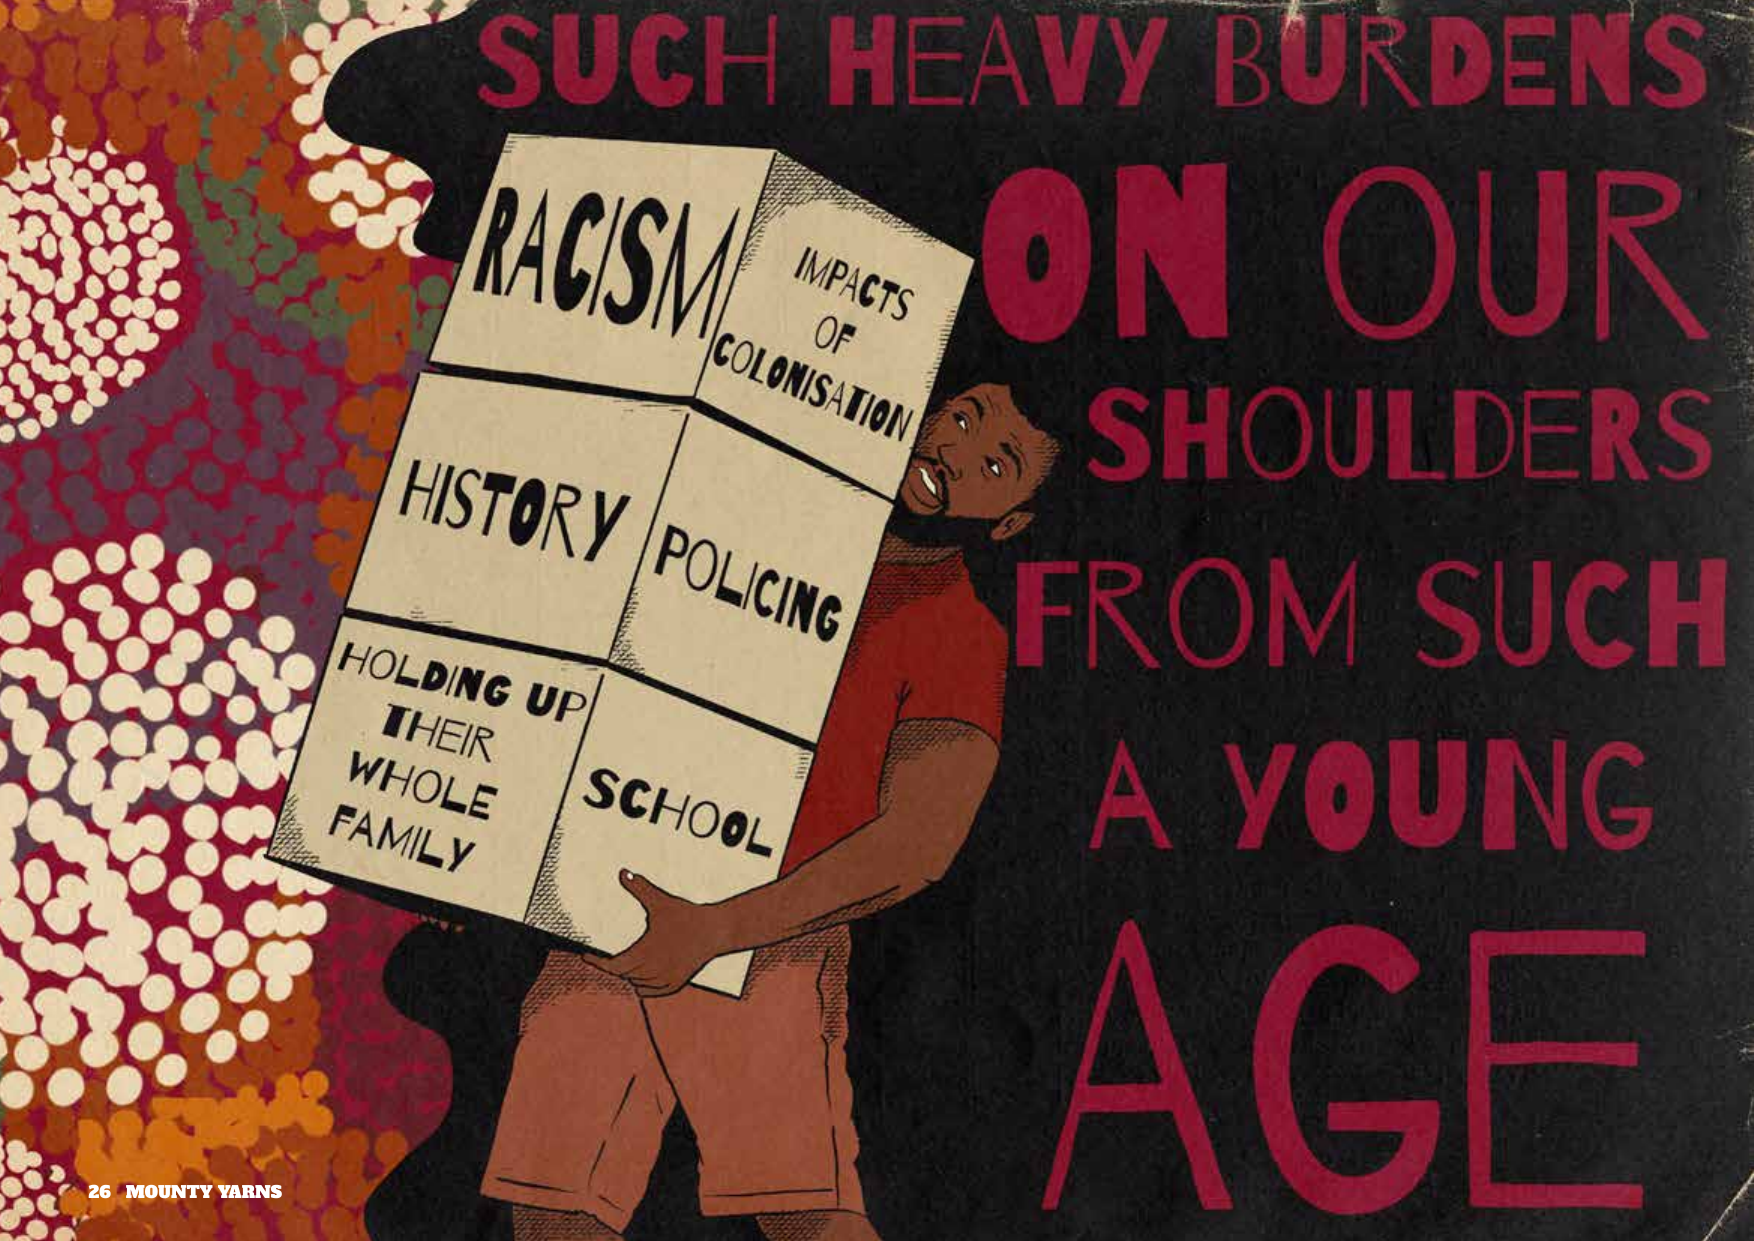 SUCH HEAVY BURDENS
ON OUR
SHOULDERS
FROM SUCH
A YOUNG
AGE
RACISM
IMPACTS
OF
COLONISATION
HISTORY
POLICING
HOLDING UP
THEIR
WHOLE
FAMILY
SCHOOL
26 MOUNTY YARNS